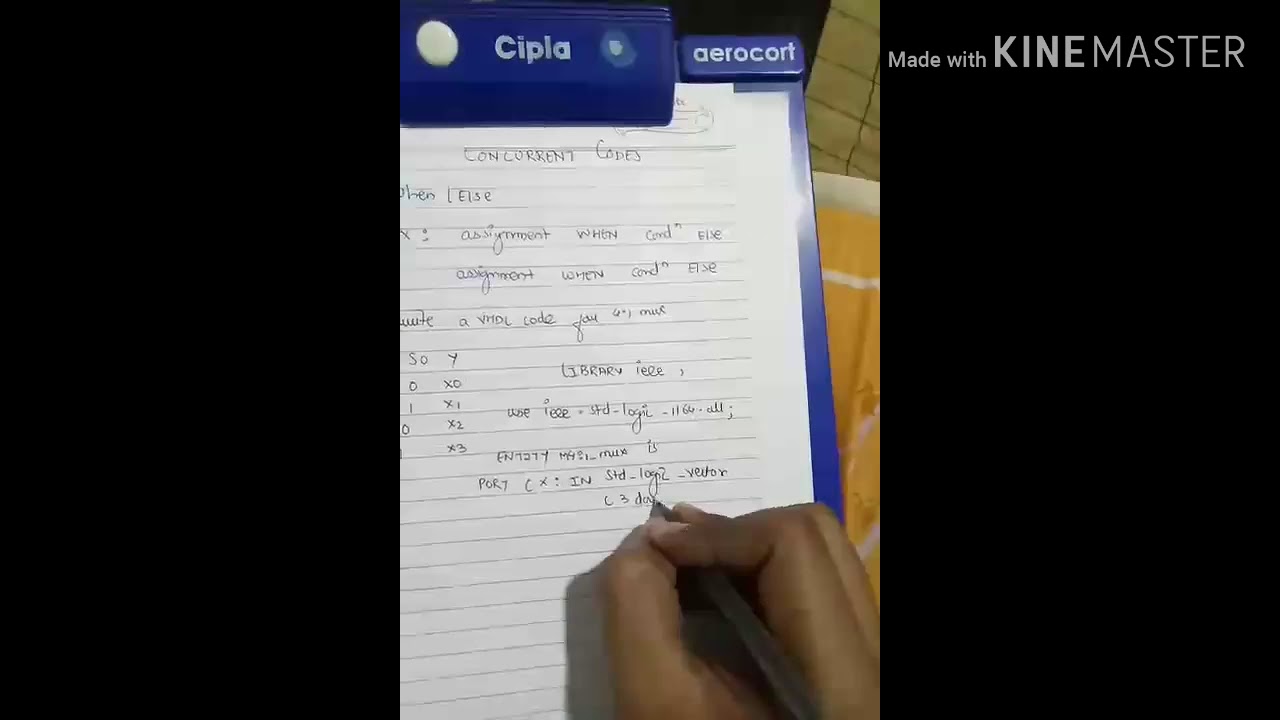 Made with KINEMASTER
Cipla
aerocort
CONCURRENT CODES
When | Else
x : assignment WHEN condⁿ Else
assignment WHEN condⁿ Else
write a VHDL code for 4:1 mux
S0 Y
0 x0
1 x1
0 x2
1 x3
LIBRARY ieee ;
use ieee.std-logic-1164.all;
ENTITY M4:1_mux is
PORT ( x : IN std-logic-vector
( 3 do